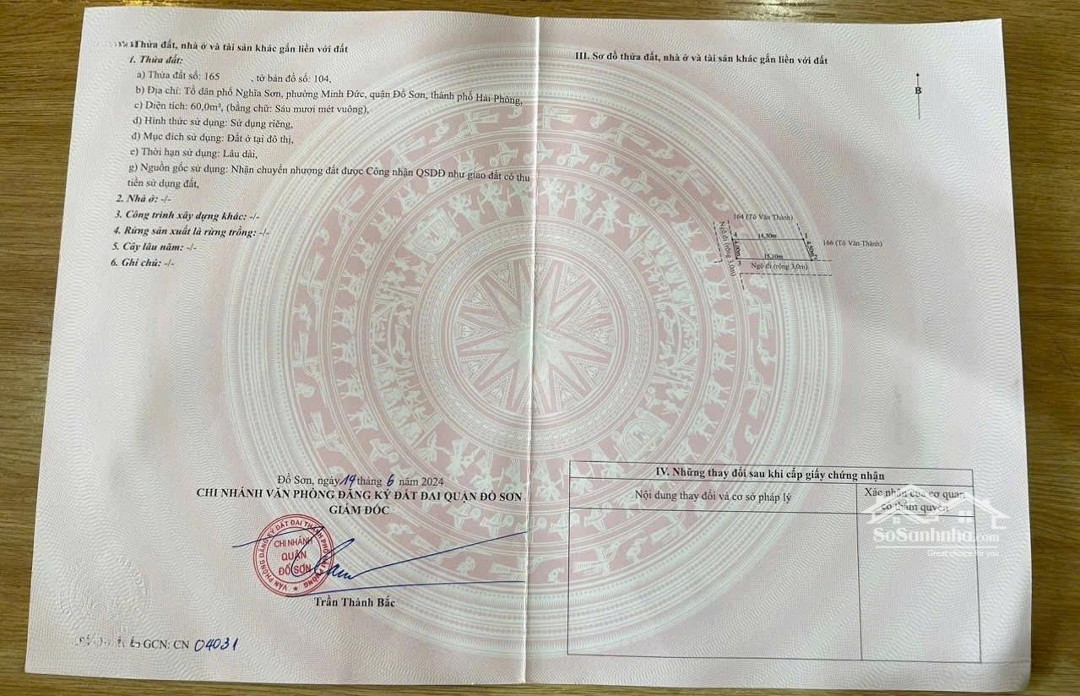 Thửa đất, nhà ở và tài sản khác gắn liền với đất
1. Thửa đất:
a) Thửa đất số: 165 , tờ bản đồ số: 104,
b) Địa chỉ: Tổ dân phố Nghĩa Sơn, phường Minh Đức, quận Đồ Sơn, thành phố Hải Phòng,
c) Diện tích: 60,0m², (bằng chữ: Sáu mươi mét vuông),
d) Hình thức sử dụng: Sử dụng riêng,
đ) Mục đích sử dụng: Đất ở tại đô thị,
e) Thời hạn sử dụng: Lâu dài,
g) Nguồn gốc sử dụng: Nhận chuyển nhượng đất được Công nhận QSDĐ như giao đất có thu
tiền sử dụng đất,
2. Nhà ở: -/-
3. Công trình xây dựng khác: -/-
4. Rừng sản xuất là rừng trồng: -/-
5. Cây lâu năm: -/-
6. Ghi chú: -/-
Đồ Sơn, ngày 14 tháng 6 năm 2024
CHI NHÁNH VĂN PHÒNG ĐĂNG KÝ ĐẤT ĐAI QUẬN ĐỒ SƠN
GIÁM ĐỐC
VĂN PHÒNG ĐĂNG KÝ ĐẤT ĐAI THÀNH PHỐ HẢI PHÒNG
CHI NHÁNH
QUẬN
ĐỒ SƠN
Trần Thành Bắc
GCN: CN 04031
III. Sơ đồ thửa đất, nhà ở và tài sản khác gắn liền với đất
B
164 (Tô Văn Thành)
14,90m
166 (Tô Văn Thành)
4,00m
15,10m
Ngõ đi (rộng 3,0m)
Ngõ đi (rộng 3,0m)
IV. Những thay đổi sau khi cấp giấy chứng nhận
Nội dung thay đổi và cơ sở pháp lý
Xác nhận của cơ quan
có thẩm quyền
SoSanhnha.com
Great choice for you